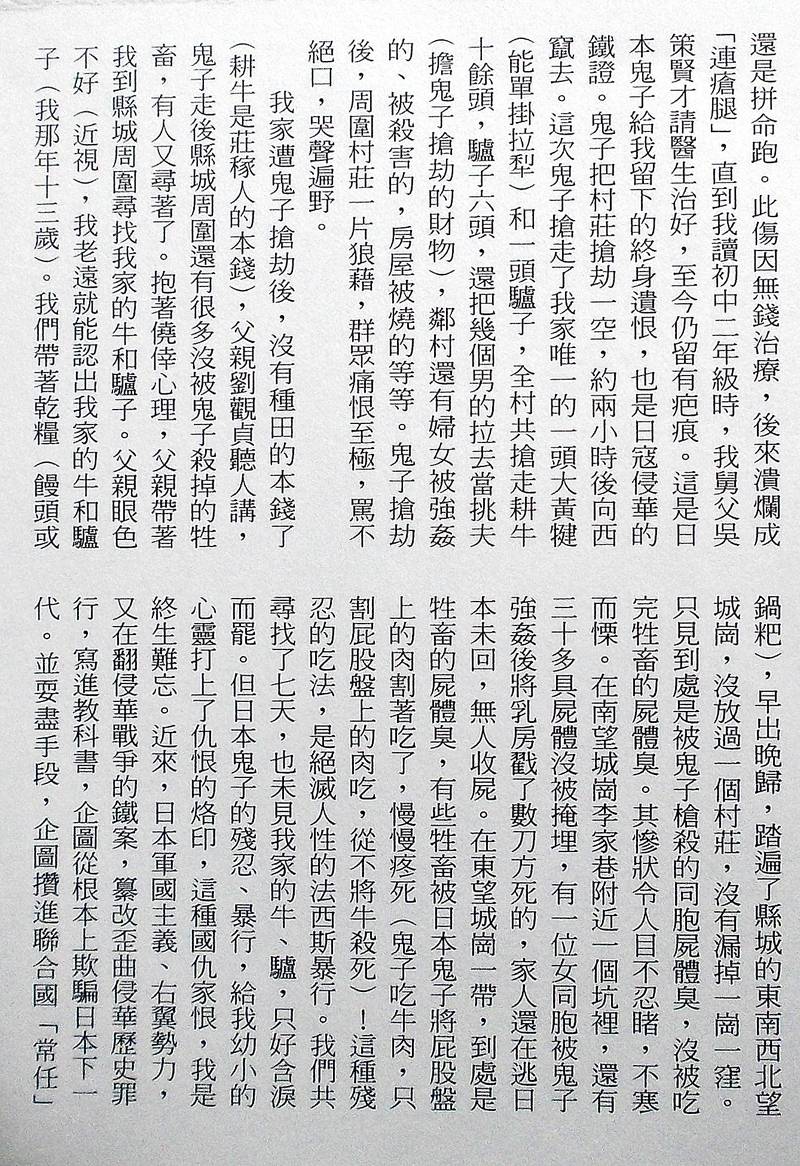 還是拼命跑。此傷因無錢治療，後來潰爛成
「連瘡腿」，直到我讀初中二年級時，我舅父吳
策賢才請醫生治好，至今仍留有疤痕。這是日
本鬼子給我留下的終身遺恨，也是日寇侵華的
鐵證。鬼子把村莊搶劫一空，約兩小時後向西
竄去。這次鬼子搶走了我家唯一的一頭大黃犍
（能單掛拉犁）和一頭驢子，全村共搶走耕牛
十餘頭，驢子六頭，還把幾個男的拉去當挑夫
（擔鬼子搶劫的財物），鄰村還有婦女被強姦
的、被殺害的，房屋被燒的等等。鬼子搶劫
後，周圍村莊一片狼藉，群眾痛恨至極，罵不
絕口，哭聲遍野。
我家遭鬼子搶劫後，沒有種田的本錢了
（耕牛是莊稼人的本錢），父親劉觀貞聽人講，
鬼子走後縣城周圍還有很多沒被鬼子殺掉的牲
畜，有人又尋著了。抱著僥倖心理，父親帶著
我到縣城周圍尋找我家的牛和驢子。父親眼色
不好（近視），我老遠就能認出我家的牛和驢
子（我那年十三歲）。我們帶著乾糧（饅頭或
鍋粑），早出晚歸，踏遍了縣城的東南西北望
城崗，沒放過一個村莊，沒有漏掉一崗一窪。
只見到處是被鬼子槍殺的同胞屍體臭，沒被吃
完牲畜的屍體臭。其慘狀令人目不忍睹，不寒
而慄。在南望城崗李家巷附近一個坑裡，還有
三十多具屍體沒被掩埋，有一位女同胞被鬼子
強姦後將乳房戳了數刀方死的，家人還在逃日
本未回，無人收屍。在東望城崗一帶，到處是
牲畜的屍體臭，有些牲畜被日本鬼子將屁股盤
上的肉割著吃了，慢慢疼死（鬼子吃牛肉，只
割屁股盤上的肉吃，從不將牛殺死）！這種殘
忍的吃法，是絕滅人性的法西斯暴行。我們共
尋找了七天，也未見我家的牛、驢，只好含淚
而罷。但日本鬼子的殘忍、暴行，給我幼小的
心靈打上了仇恨的烙印，這種國仇家恨，我是
終生難忘。近來，日本軍國主義、右翼勢力，
又在翻侵華戰爭的鐵案，纂改歪曲侵華歷史罪
行，寫進教科書，企圖從根本上欺騙日本下一
代。並耍盡手段，企圖攢進聯合國「常任」